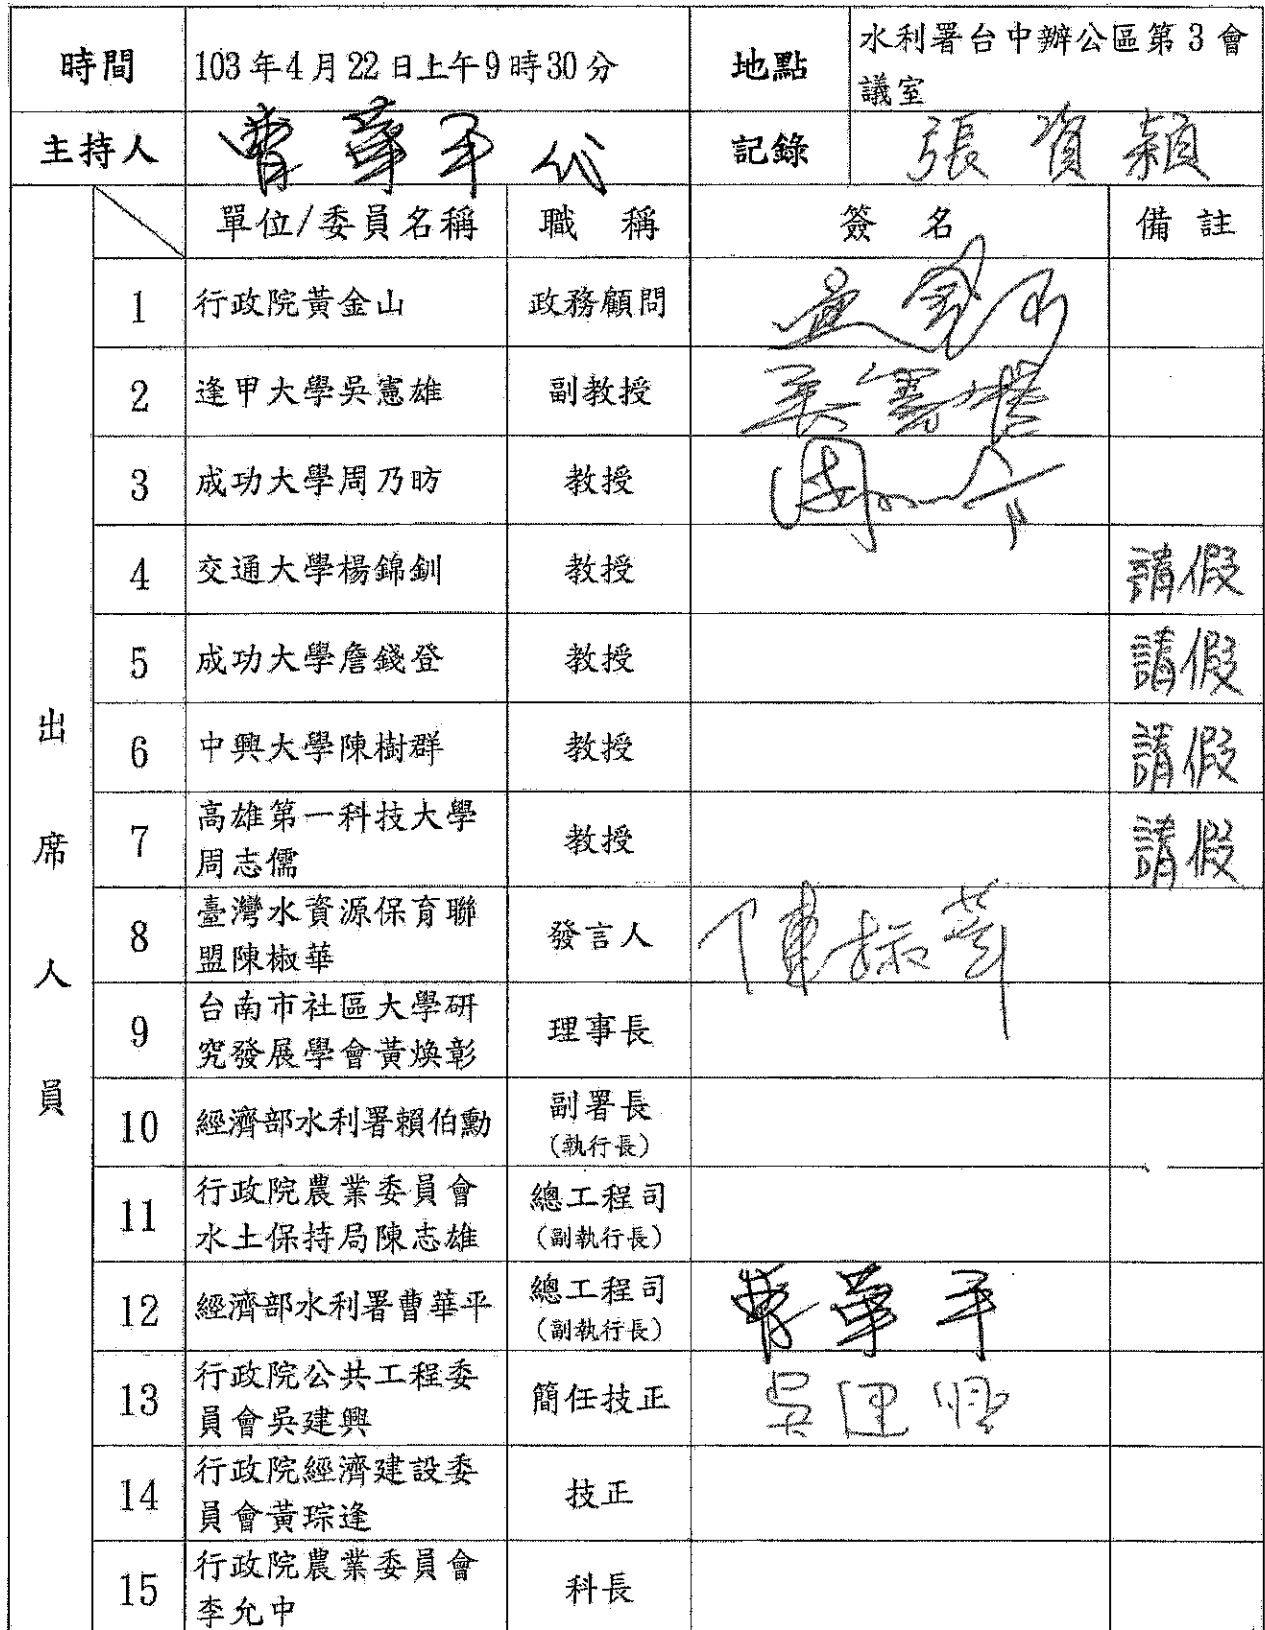 時間 103年4月22日上午9時30分 地點 水利署台中辦公區第3會
議室
主持人 曹華平代 記錄 張資穎
單位/委員名稱 職稱 簽名 備註
1 行政院黃金山 政務顧問 黃金山
2 逢甲大學吳憲雄 副教授 吳憲雄
3 成功大學周乃昉 教授 周乃昉
4 交通大學楊錦釧 教授 請假
5 成功大學詹錢登 教授 請假
6 中興大學陳樹群 教授 請假
7 高雄第一科技大學
周志儒 教授 請假
8 臺灣水資源保育聯
盟陳椒華 發言人 陳椒華
9 台南市社區大學研
究發展學會黃煥彰 理事長
10 經濟部水利署賴伯勳 副署長
(執行長)
11 行政院農業委員會
水土保持局陳志雄 總工程司
(副執行長)
12 經濟部水利署曹華平 總工程司
(副執行長) 曹華平
13 行政院公共工程委
員會吳建興 簡任技正 吳建興
14 行政院經濟建設委
員會黃琮逢 技正
15 行政院農業委員會
李允中 科長
出席人員